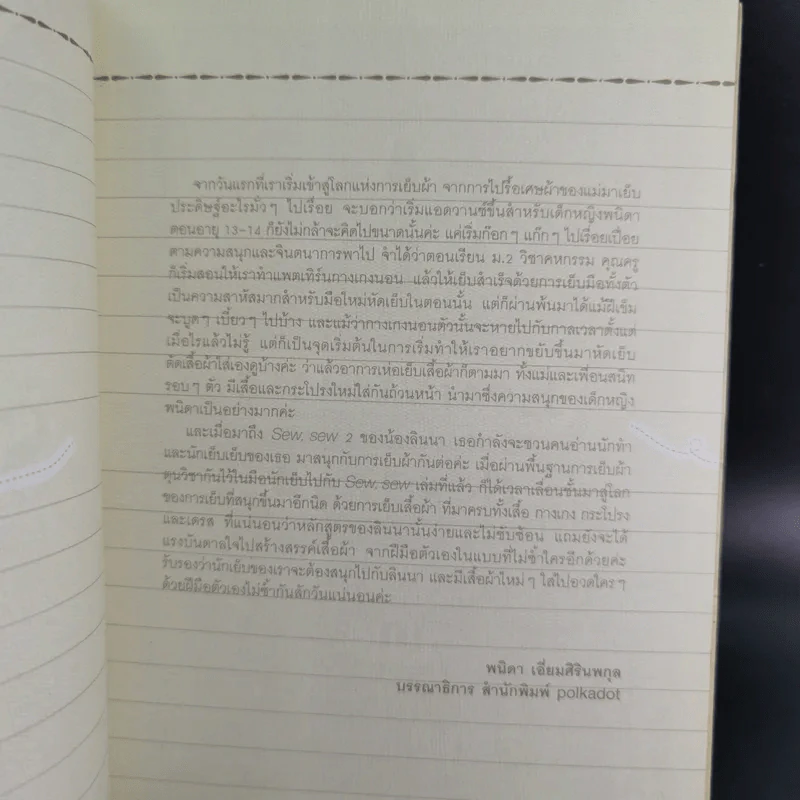 จากวันแรกที่เราเริ่มเข้าสู่โลกแห่งการเย็บผ้า จากการไปรื้อเศษผ้าของแม่มาเย็บ
ประดิษฐ์อะไรมั่วๆ ไปเรื่อย จะบอกว่าเริ่มแอดวานซ์ขึ้นสำหรับเด็กหญิงพนิดา
ตอนอายุ 13-14 ก็ยังไม่กล้าจะคิดไปขนาดนั้นค่ะ แค่เริ่มก๊อกๆ แก๊กๆ ไปเรื่อยเปื่อย
ตามความสนุกและจินตนาการพาไป จำได้ว่าตอนเรียน ม.2 วิชาคหกรรม คุณครู
ก็เริ่มสอนให้เราทำแพตเทิร์นกางเกงนอน แล้วให้เย็บสำเร็จด้วยการเย็บมือทั้งตัว
เป็นความสาหัสมากสำหรับมือใหม่หัดเย็บในตอนนั้น แต่ก็ผ่านพ้นมาได้แม้ฝีเข็ม
จะบูดๆ เบี้ยวๆ ไปบ้าง และแม้ว่ากางเกงนอนตัวนั้นจะหายไปกับกาลเวลาตั้งแต่
เมื่อไรแล้วไม่รู้ แต่ก็เป็นจุดเริ่มต้นในการเริ่มทำให้เราอยากขยับขึ้นมาหัดเย็บ
ตัดเสื้อผ้าใส่เองดูบ้างค่ะ ว่าแล้วอาการเห่อเย็บเสื้อผ้าก็ตามมา ทั้งแม่และเพื่อนสนิท
รอบๆ ตัว มีเสื้อและกระโปรงใหม่ใส่กันถ้วนหน้า นำมาซึ่งความสนุกของเด็กหญิง
พนิดาเป็นอย่างมากค่ะ
และเมื่อมาถึง Sew, sew 2 ของน้องลินนา เธอกำลังจะชวนคนอ่านนักทำ
และนักเย็บเย็บของเธอ มาสนุกกับการเย็บผ้ากันต่อค่ะ เมื่อผ่านพื้นฐานการเย็บผ้า
ตุนวิชากันไว้ในมือนักเย็บไปกับ Sew, sew เล่มที่แล้ว ก็ได้เวลาเลื่อนชั้นมาสู่โลก
ของการเย็บที่สนุกขึ้นมาอีกนิด ด้วยการเย็บเสื้อผ้า ที่มาครบทั้งเสื้อ กางเกง กระโปรง
และเดรส ที่แน่นอนว่าหลักสูตรของลินนานั้นง่ายและไม่ซับซ้อน แถมยังจะได้
แรงบันดาลใจไปสร้างสรรค์เสื้อผ้า จากฝีมือตัวเองในแบบที่ไม่ซ้ำใครอีกด้วยค่ะ
รับรองว่านักเย็บของเราจะต้องสนุกไปกับลินนา และมีเสื้อผ้าใหม่ๆ ใส่ไปอวดใครๆ
ด้วยฝีมือตัวเองไม่ซ้ำกันสักวันแน่นอนค่ะ
พนิดา เอี่ยมศิรินพกุล
บรรณาธิการ สำนักพิมพ์ polkadot